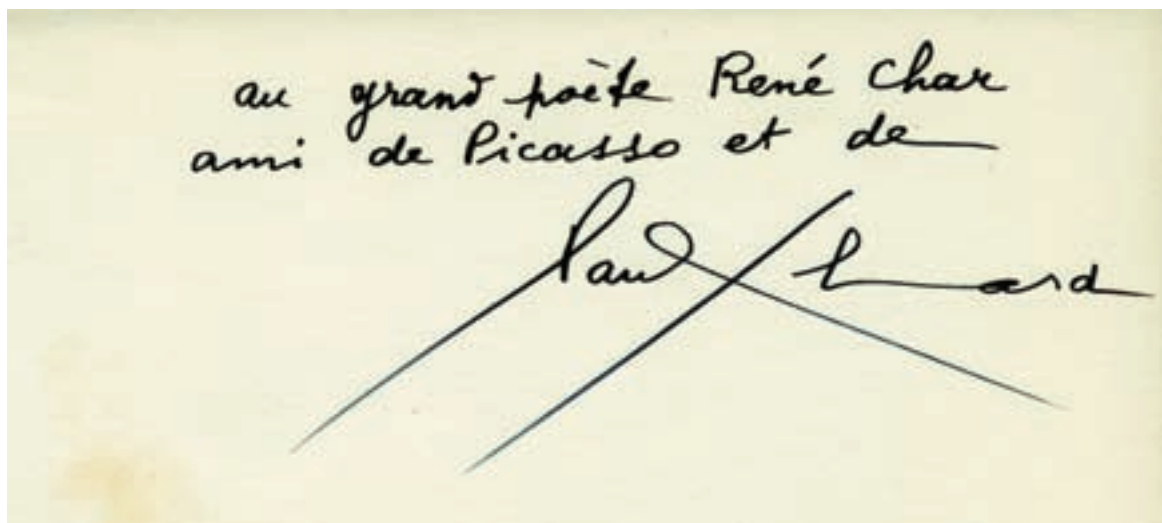 au grand poète René Char
ami de Picasso et de
Paul Éluard